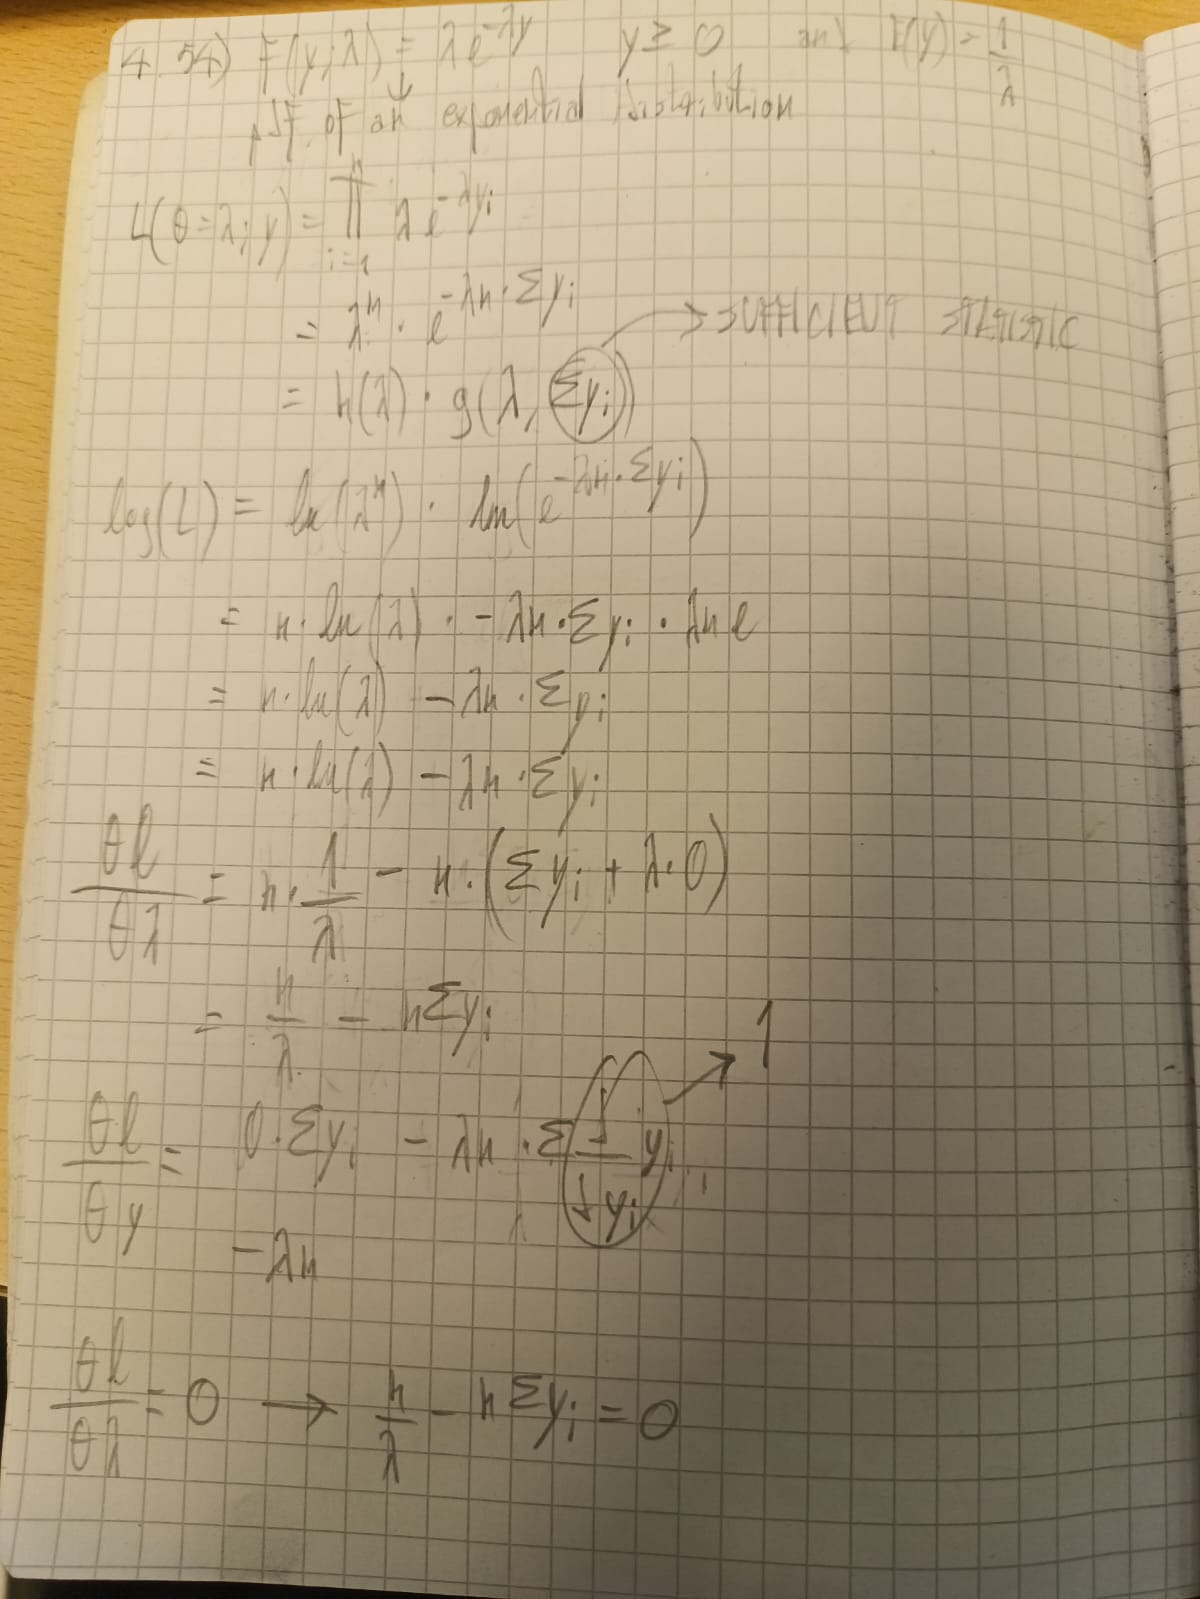 4.54) F(y;λ) = λe^{-λy} y ≥ 0 and E(y) = 1/λ
↓
pdf of an exponential distribution
L(θ=λ; y) = ∏_{i=1}^{n} λe^{-λy_i}
= λ^n · e^{-λn·Σy_i}
= h(λ) · g(λ, Σy_i) → SUFFICIENT STATISTIC
log(L) = ln(λ^n) · ln(e^{-λn·Σy_i})
= n·ln(λ) · -λn·Σy_i · ln e
= n·ln(λ) - λn·Σy_i
= n·ln(λ) - λn·Σy_i
θl/θλ = n·1/λ - n·(Σy_i + λ·0)
= n/λ - nΣy_i
θl/θy = 0·Σy_i - λn·Σ d/dy_i y_i → 1
-λn
θl/θλ = 0 → n/λ - nΣy_i = 0